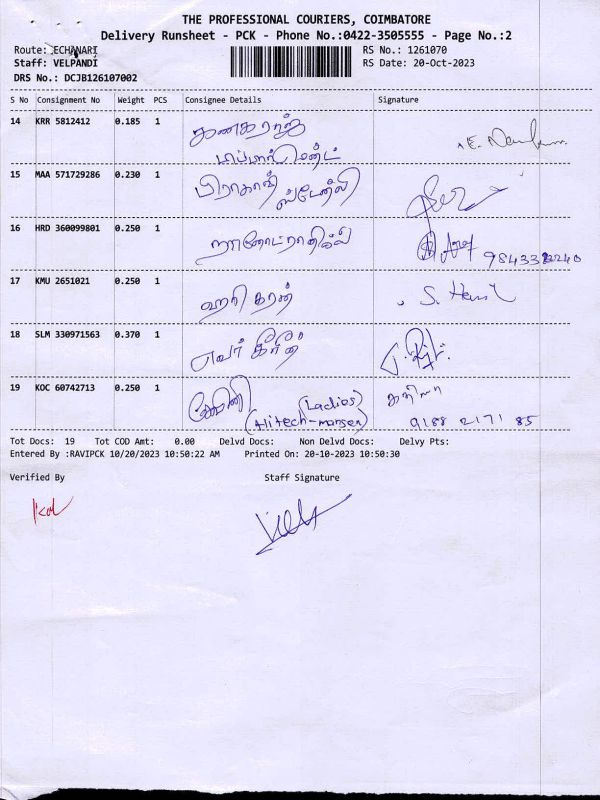 THE PROFESSIONAL COURIERS, COIMBATORE
Delivery Runsheet - PCK - Phone No.:0422-3505555 - Page No.:2
Route: ECHANARI RS No.: 1261070
Staff: VELPANDI RS Date: 20-Oct-2023
DRS No.: DCJB126107002
S No Consignment No Weight PCS Consignee Details Signature
14 KRR 5812412 0.185 1 கனகராஜ்
15 MAA 571729286 0.230 1 பிரகாஷ்
16 HRD 360099801 0.250 1 9843332240
17 KMU 2651021 0.250 1 ஹரி கரன் S. Hari
18 SLM 330971563 0.370 1 எவர் கிரீன்
19 KOC 60742713 0.250 1 (Ladies)
(Hitech-mansen) 9188 2171 85
Tot Docs: 19 Tot COD Amt: 0.00 Delvd Docs: Non Delvd Docs: Delvy Pts:
Entered By :RAVIPCK 10/20/2023 10:50:22 AM Printed On: 20-10-2023 10:50:30
Verified By Staff Signature